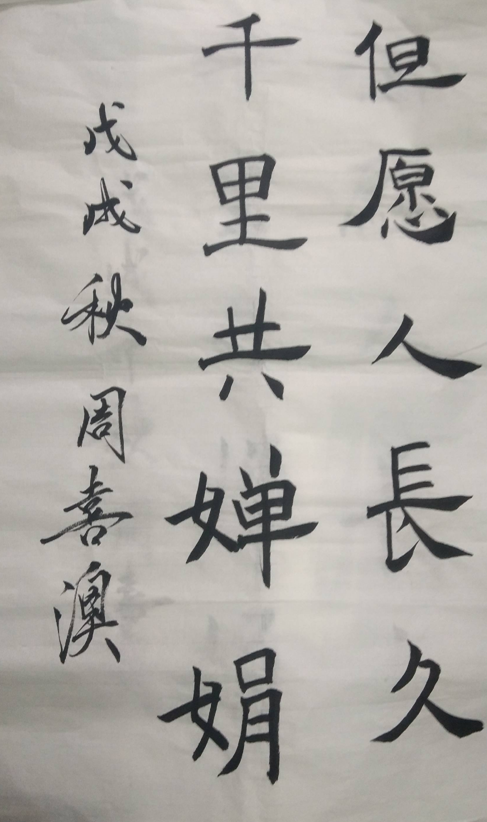 但愿人長久
千里共婵娟
戊戌秋周喜澳